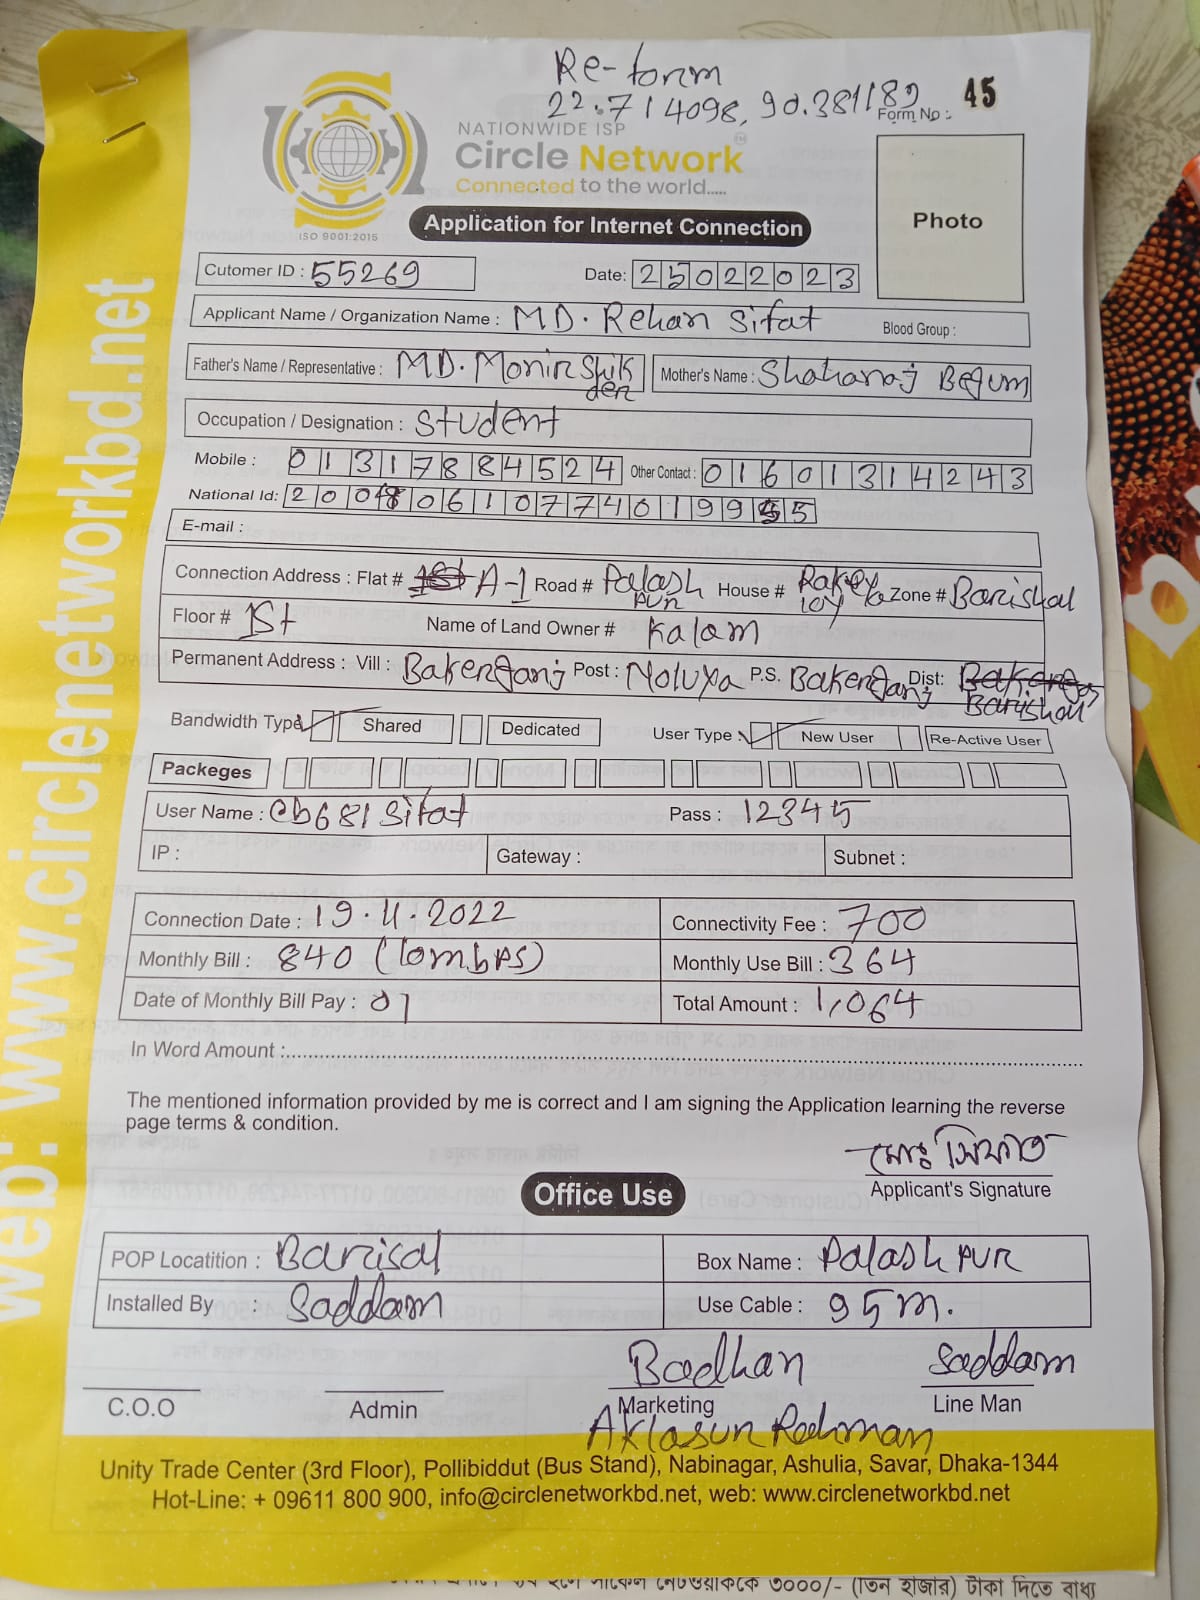 Re-form
22.714098, 90.381189
Form No : 45
NATIONWIDE ISP
Circle Network
Connected to the world.....
ISO 9001:2015
Application for Internet Connection
Photo
Cutomer ID : 55269
Date: 25022023
Applicant Name / Organization Name : MD. Rehan Sifat Blood Group :
Father's Name / Representative : MD. Monir Shikder
Mother's Name : Shahanaj Begum
Occupation / Designation : Student
Mobile : 01317884524 Other Contact : 01601314243
National Id: 20080610774019955
E-mail :
Connection Address : Flat # A-1 Road # Palash pur House # Zone # Barishal
Floor # 1st Name of Land Owner # Kalam
Permanent Address : Vill : Bakerganj Post : Noluya P.S. Bakerganj Dist: Barishal
Bandwidth Type Shared Dedicated User Type : New User Re-Active User
Packeges
User Name : cb681sifat Pass : 12345
IP : Gateway : Subnet :
Connection Date : 19.11.2022 Connectivity Fee : 700
Monthly Bill : 840 (10mbps) Monthly Use Bill : 364
Date of Monthly Bill Pay : 01 Total Amount : 1,064
In Word Amount :
The mentioned information provided by me is correct and I am signing the Application learning the reverse
page terms & condition.
মোঃ সিফাত
Applicant's Signature
Office Use
POP Locatition : Barisal Box Name : Palashpur
Installed By : Saddam Use Cable : 95m.
Badhan Saddam
C.O.O Admin Marketing Line Man
Aklasur Rahman
Unity Trade Center (3rd Floor), Pollibiddut (Bus Stand), Nabinagar, Ashulia, Savar, Dhaka-1344
Hot-Line: + 09611 800 900, info@circlenetworkbd.net, web: www.circlenetworkbd.net
web: www.circlenetworkbd.net
৩০০০/- (তিন হাজার) টাকা দিতে বাধ্য